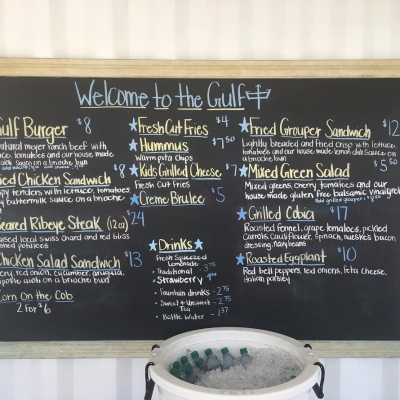 Welcome to the Gulf
Gulf Burger $8
natural meyer ranch beef with
lettuce, tomatoes and our house made
sauce on a brioche bun
Fried Chicken Sandwich $8
crispy tenders with lettuce, tomatoes
buttermilk sauce on a brioche
Seared Ribeye Steak (12oz) $24
local swiss chard and red bliss
potatoes
Chicken Salad Sandwich $13
celery, red onion, cucumber, arugula,
aioli on a brioche bun
Corn on the Cob
2 for $6
Fresh Cut Fries $4
Hummus $7.50
Warm pita Chips
Kids Grilled Cheese $7
Fresh Cut Fries
Creme Brulee $5
Drinks
Fresh Squeezed
Lemonade
- Traditional
Strawberry
- Fountain drinks - 2.75
- Sweet + Unsweet - 2.75
Tea
- Bottle Water - 1.37
Fried Grouper Sandwich $12
Lightly breaded and fried crisp with lettuce,
tomatoes and our house made lemon dill Sauce on
a brioche bun
Mixed Green Salad $5.50
Mixed greens, cherry tomatoes and our
house made gluten free balsamic vinaigrette
Grilled Cobia $17
Roasted fennel, grape tomatoes, pickled
Carrots, Cauliflower, Spinach, nueske's bacon
dressing, navy beans
Roasted Eggplant $10
Red bell peppers, red onions, feta cheese,
Italian parsley